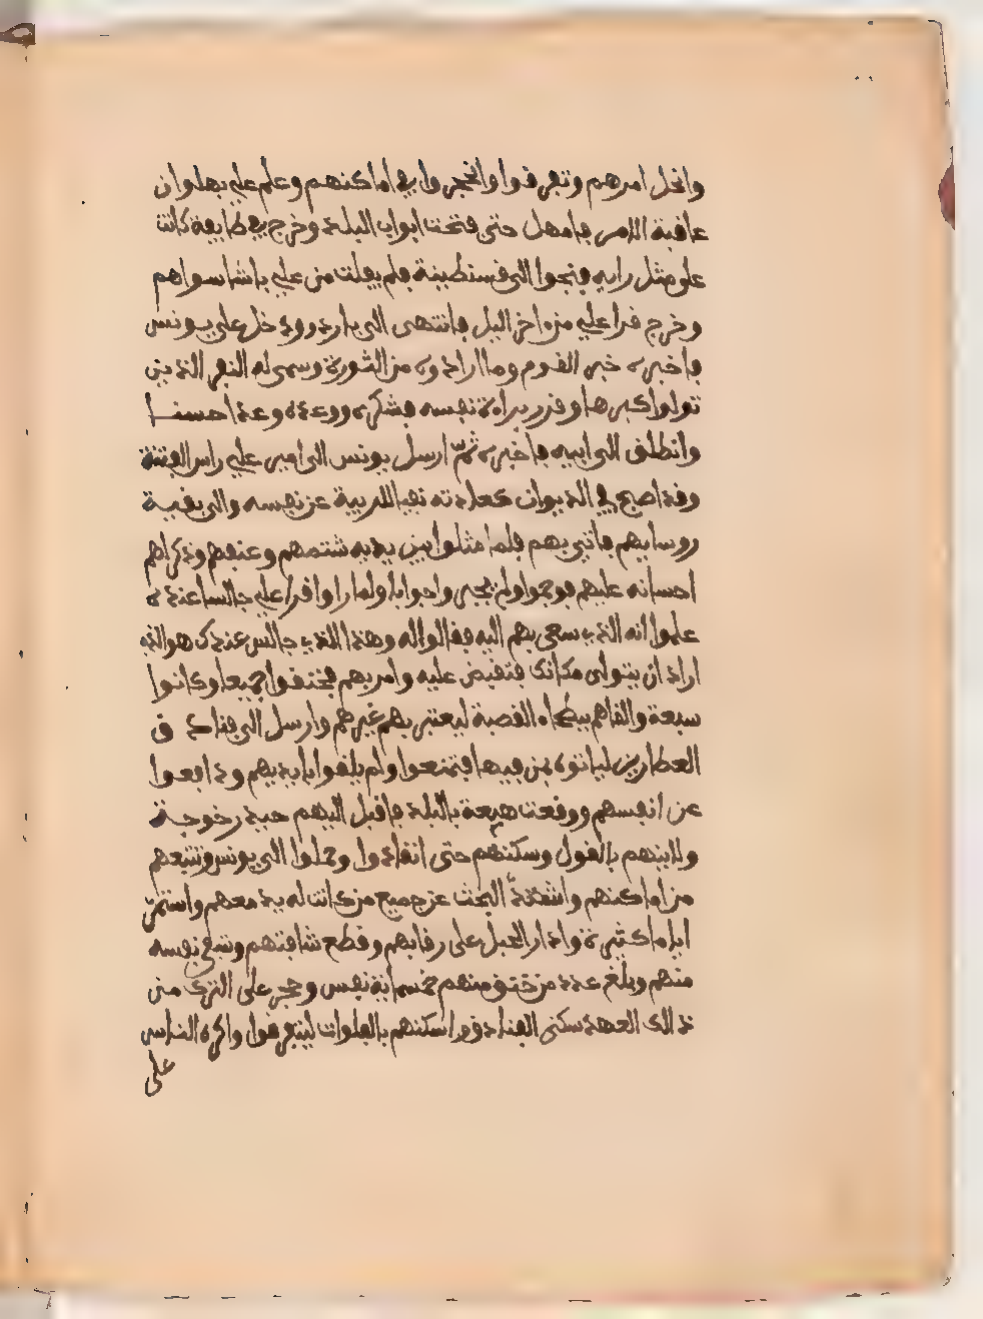 وانحل امرهم وتفرقوا وانحجروا في اماكنهم وعلم علي بهلوان
عاقبة الامر فامهل حتى فتحت ابواب البلد وخرج في طايفة كانت
على مثل رايه فنجوا الى قسنطينة فلم يفلت من علي باشا سواهم
وخرج قرا علي من اخر اليل فانتهى الى باردو ودخل على يونس
فاخبره خبر القوم وما ارادوه من الثورة وسمى له النفر الذين
تولوا كبرها وقرر براة نفسه فشكره ووعده وعدا حسنا
وانطلق الى ابيه فاخبره ثم ارسل يونس الى امير علي راس الفتنة
وقد اصبح في الديوان كعادته نفيا للريبة عن نفسه والى بقية
روسايهم فاتي بهم فلما مثلوا بين يديه شتمهم وعنفهم وذكراهم
احسانه عليهم فوجموا ولم يحيروا جوابا ولما راوا قرا علي جالسا عنده
علموا انه الذي سعى بهم اليه فقالوا له وهذا الذي جالس عندك هو الذي
اراد ان يتولى مكانك فتقبض عليه وامر بهم فخنقوا جميعا وكانوا
سبعة والقاهم ببطحاء القصبة ليعتبر بهم غيرهم وارسل الى فنادق
العطارين لياتوه بمن فيها فتمنعوا ولم يلقوا بايديهم ودافعوا
عن انفسهم ووقعت هيعة بالبلد فاقبل اليهم حيدر خوجة
ولاينهم بالقول وسكنهم حتى انقادوا وحملوا الى يونس وتتبعهم
من اماكنهم واشتد البحث عن جميع من كانت له يد معهم واستمر
اياما كثيرة وادار الحبل على رقابهم وقطع شافتهم وشفى نفسه
منهم وبلغ عدد من خنق منهم خمسماية نفس وحجر على الترك من
ذالك العهد سكنى الفنادق واسكنهم بالعلوات ليتفرقوا واكره الناس
على